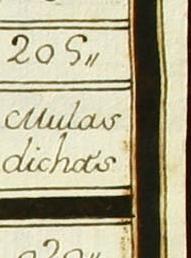 205"
Mulas
dichas